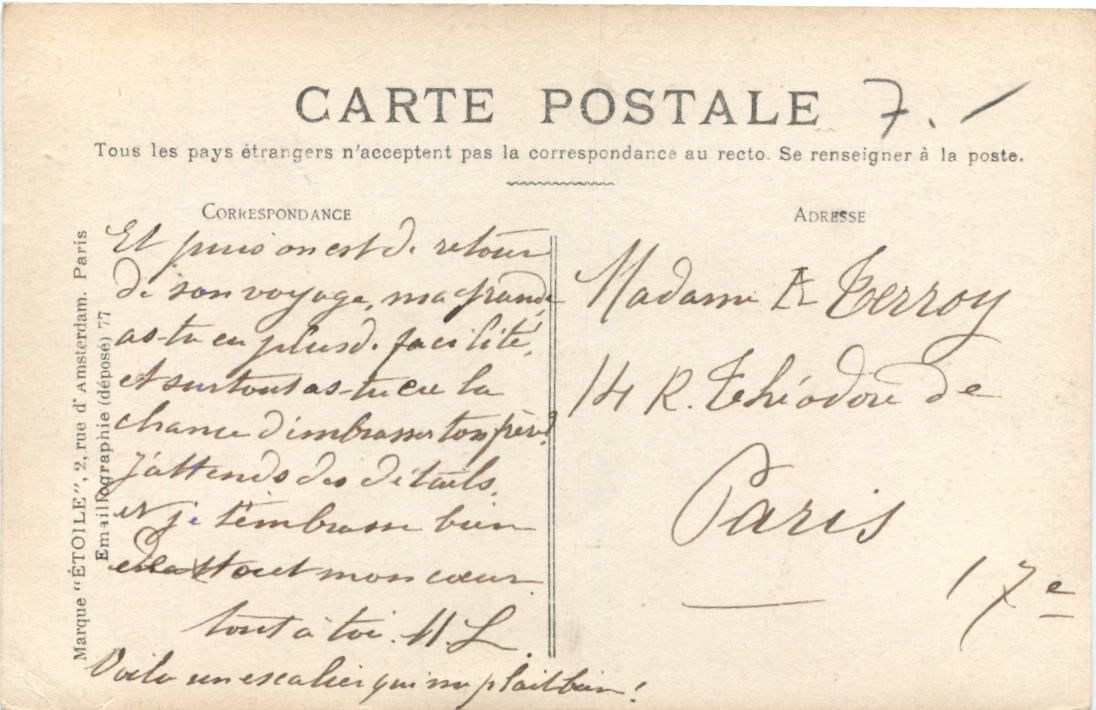 CARTE POSTALE 7.
Tous les pays étrangers n'acceptent pas la correspondance au recto. Se renseigner à la poste.
CORRESPONDANCE
Et puis on est de retour
de son voyage, ma grande
as-tu eu plus de facilité,
et surtout as-tu eu la
chance d'embrasser ton frère?
J'attends des détails,
et je t'embrasse bien
de tout mon cœur
tout à toi. M. L.
Voila un escalier qui me plait bien!
ADRESSE
Madame A Terroy
14 R. Théodore de
Paris
17e
Marque "ÉTOILE", 2, rue d'Amsterdam. Paris
Emaillographie (déposé) 77